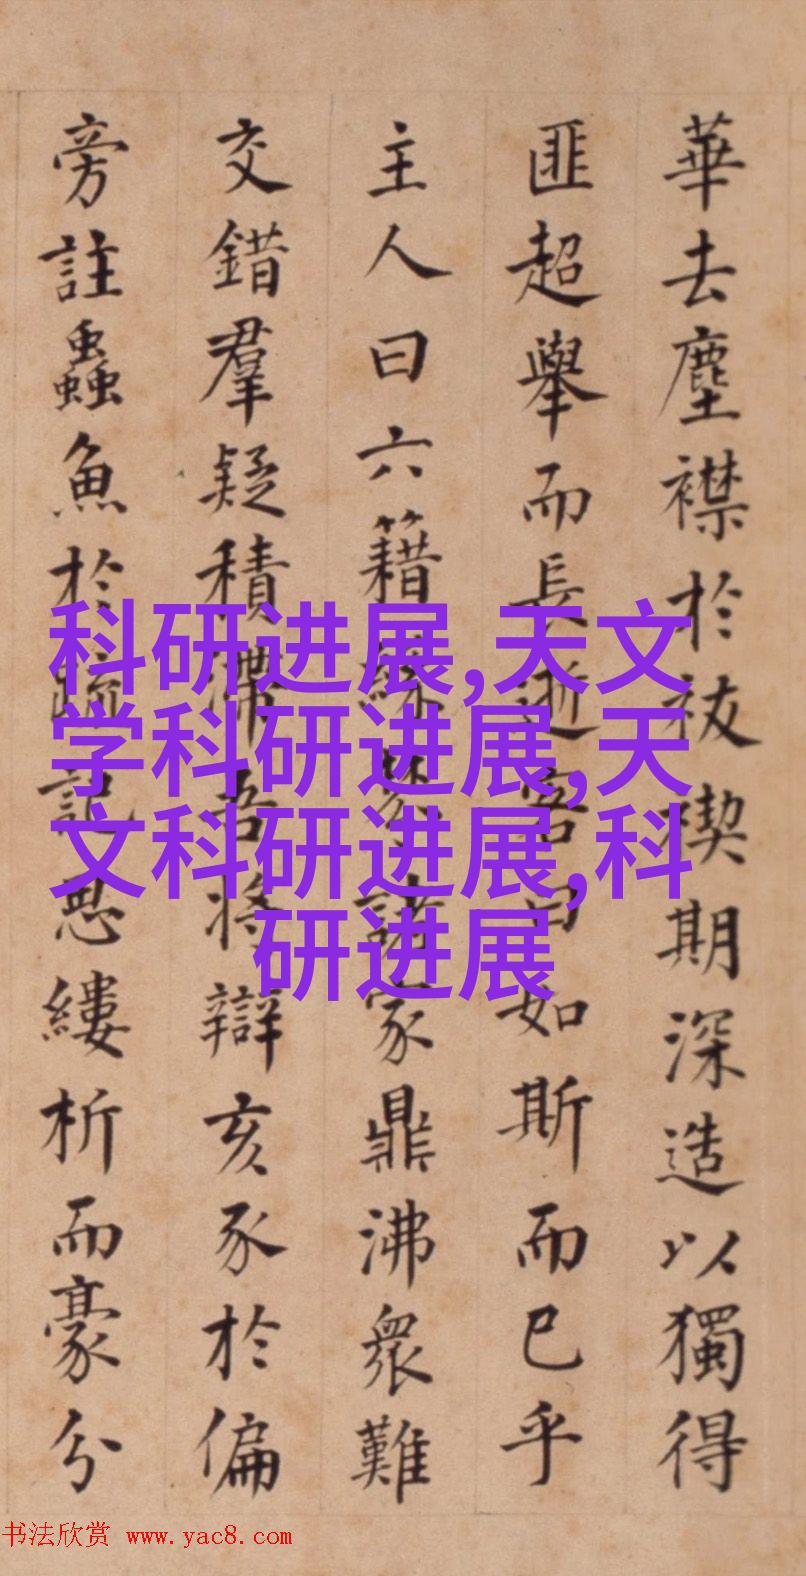 華去塵襟於祓禊期深造以獨得
匪超舉而長逝客曰如斯而已乎
主人曰六籍諸家鼎沸衆難
交錯羣疑積滯吾將辯亥豕於偏
旁註蟲魚於疏記思縷析而豪分
科研进展,天文
学科研进展,天
文科研进展,科
研进展
书法欣赏 www.yac8.com